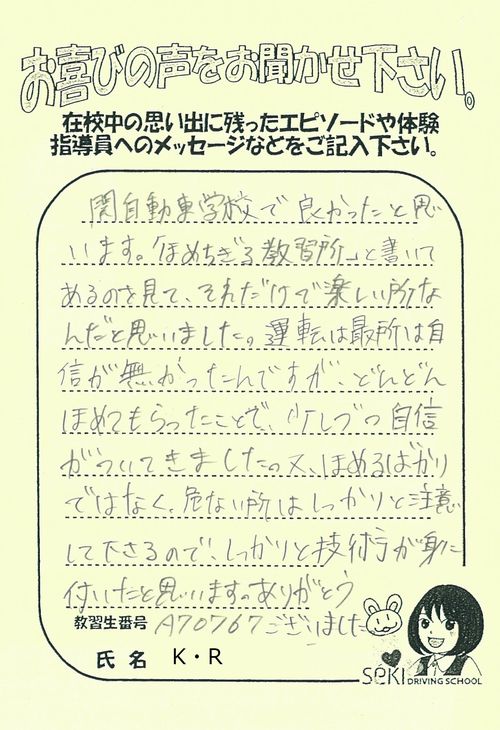 お喜びの声をお聞かせ下さい。
在校中の思い出に残ったエピソードや体験
指導員へのメッセージなどをご記入下さい。
関自動車学校で良かったと思
います。「ほめちぎる教習所」と書いて
あるのを見て、それだけで楽しい所な
んだと思いました。運転は最所は自
信が無かったんですが、どんどん
ほめてもらったことで、少しづつ自信
がついてきました。又、ほめるばかり
ではなく、危ない所はしっかりと注意
して下さるので、しっかりと技術が身に
付いたと思います。ありがとう
教習生番号 A70767 ございました
氏名 K・R
SEKI DRIVING SCHOOL